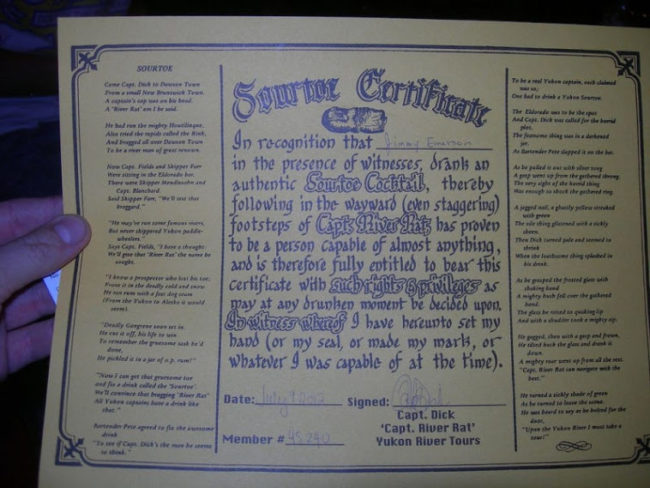 SOURTOE
Come Capt. Dick to Dawson Town
From a small New Brunswick Town.
A captain's cap was on his head.
A "River Rat" am I he said.
He had run the mighty Hootalinqua,
Also tried the rapids called the Rink,
And bragged all over Dawson Town
To be a river man of great renown.
Now Capt. Fields and Skipper Farr
Were sitting in the Eldorado bar.
There were Skipper Mendlesohn and
Capt. Blanchard.
Said Skipper Farr, "We'll see this
braggard."
"He may've run some famous rivers,
But never skippered Yukon paddle-
wheelers."
Says Capt. Fields, "I have a thought:
We'll give that 'River Rat' the name he
sought.
"I know a prospector who lost his toe;
Froze it in the deadly cold and snow.
He run rum with a fast dog team
(From the Yukon to Alaska it would
seem).
"Deadly Gangrene soon set in.
He cut it off, his life to win
To remember the gruesome task he'd
done,
He pickled it in a jar of o.p. rum!"
"Now I can get that gruesome toe
and fix a drink called the 'Sourtoe'.
We'll convince that bragging 'River Rat'
All Yukon captains have a drink like
that."
Bartender Pete agreed to fix the awesome
drink
"To see if Capt. Dick's the man he seems
to think."
Sourtoe Certificate
In recognition that Jimmy Emerson
in the presence of witnesses, drank an
authentic Sourtoe Cocktail, thereby
following in the wayward (even staggering)
footsteps of Capt. River Rat, has proven
to be a person capable of almost anything,
and is therefore fully entitled to bear this
certificate with such rights & privileges as
may at any drunken moment be decided upon.
In witness whereof I have hereunto set my
hand (or my seal, or made my mark, or
whatever I was capable of at the time).
Date: July 2012 Signed:
Capt. Dick
'Capt. River Rat'
Member # 45290 Yukon River Tours
To be a real Yukon captain, each claimed
was so;
One had to drink a Yukon Sourtoe.
The Eldorado was to be the spot
And Capt. Dick was called for the horrid
plot.
The fearsome thing was in a darkened
jar.
As Bartender Pete slapped it on the bar.
As he pulled it out with silver tong
A gasp went up from the gathered throng.
The very sight of the horrid thing
Was enough to shock the gathered ring.
A jagged nail, a ghastly yellow streaked
with green
The vile thing glistened with a sickly
sheen.
Then Dick turned pale and seemed to
shrink
When the loathsome thing splashed in
his drink.
As he grasped the frosted glass with
shaking hand
A mighty hush fell over the gathered
band.
The glass he raised to quaking lip
And with a shudder took a mighty sip.
He gagged, then with a gasp and frown,
He tilted back the glass and drank it
down.
A mighty roar went up from all the rest.
"Capt. River Rat can navigate with the
best."
He turned a sickly shade of green
As he turned to leave the scene.
He was heard to say as he bolted for the
door,
"Upon the Yukon River I must take a
tour!"